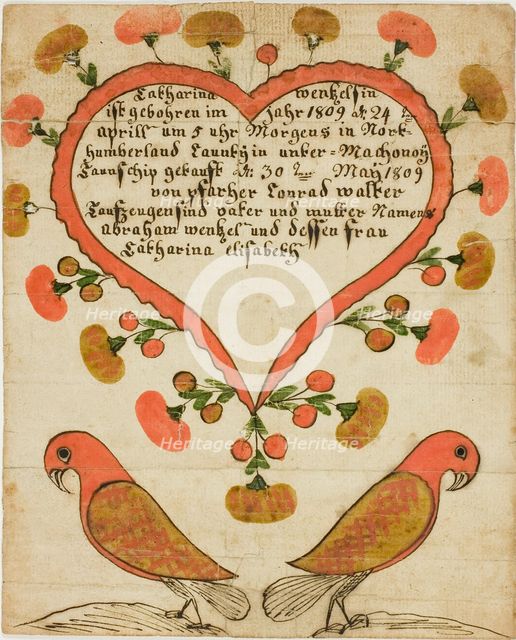 Catharina wentzelsin
ist gebohren im jahr 1809 den 24 ten
aprill um 5 uhr Morgens in Nort-
humberland Caunty in unter=Machonoÿ
Taunschip getauft den 30 ten Maÿ 1809
von pfarher Conrad walter
Taufzeugen sind vater und mutter Namens
abraham wentzel und dessen frau
Catharina elisabeth
Heritage Heritage Heritage
Heritage Heritage
Heritage Heritage Heritage